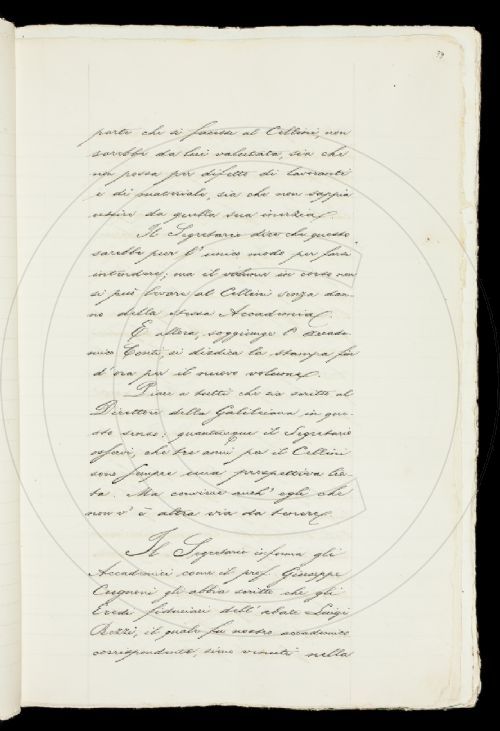 39
parte che si facesse al Cellini, non
sarebbe da lui valutata, sia che
non possa per difetto di lavoranti
e di materiale, sia che non sappia
uscire da quella sua inerzia.
Il Segretario dice che questo
sarebbe pur l'unico modo per farsi
intendere; ma il volume in corso non
si può levare al Cellini senza dan-
no della stessa Accademia.
E allora, soggiunge l'Accade-
mico Conti, si dedica la stampa fin
d'ora per il nuovo volume.
Piace a tutti che sia scritto al
Direttore della Galileiana in que-
sto senso; quantunque il Segretario
osservi, che tre anni per il Cellini
sono sempre una prospettiva lie-
ta. Ma conviene anch'egli che
non v'è altra via da tenere.
Il Segretario informa gli
Accademici come il prof. Giuseppe
Cugnoni gli abbia scritto che gli
Eredi fiduciari dell'abate Luigi
Bozzi, il quale fu nostro accademico
corrispondente, sieno venuti nella